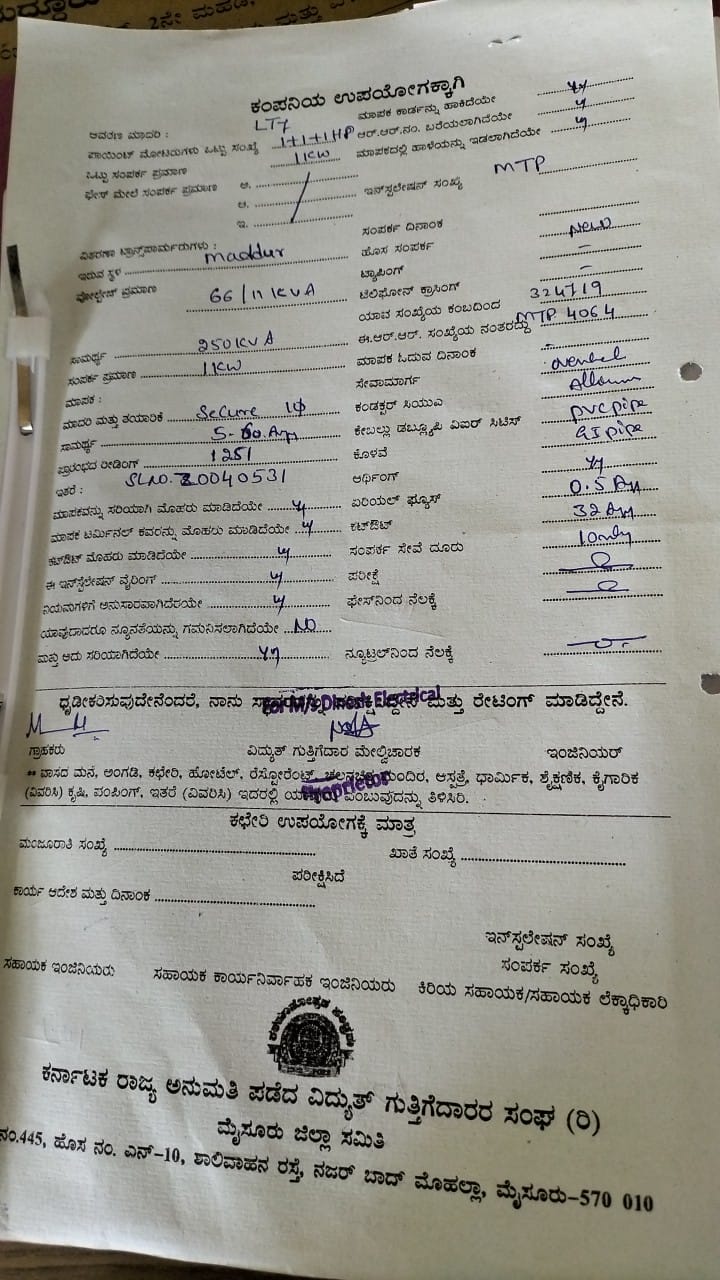 ಕಂಪನಿಯ ಉಪಯೋಗಕ್ಕಾಗಿ
ಆವರಣ ಮಾದರಿ : LT7 ಮಾಪಕ ಕಾರ್ಡನ್ನು ಹಾಕಿದೆಯೇ
ಪಾಯಿಂಟ್ ಮೋಟರುಗಳು ಒಟ್ಟು ಸಂಖ್ಯೆ 1+1+1 HP ಆರ್.ಆರ್.ನಂ. ಬರೆಯಲಾಗಿದೆಯೇ y
ಒಟ್ಟು ಸಂಪರ್ಕ ಪ್ರಮಾಣ 11KW ಮಾಪಕದಲ್ಲಿ ಹಾಳೆಯನ್ನು ಇಡಲಾಗಿದೆಯೇ y
ಫೇಸ್ ಮೇಲೆ ಸಂಪರ್ಕ ಪ್ರಮಾಣ ಅ. ಇನ್‌ಸ್ಪಲೇಷನ್ ಸಂಖ್ಯೆ MTP
ಆ.
ಇ. ಸಂಪರ್ಕ ದಿನಾಂಕ
ವಿತರಣಾ ಟ್ರಾನ್ಸ್‌ಪಾರ್ಮರುಗಳು : ಹೊಸ ಸಂಪರ್ಕ New
ಇರುವ ಸ್ಥಳ Maddur ಟ್ಯಾಪಿಂಗ್ –
ವೋಲ್ಟೇಜ್ ಪ್ರಮಾಣ 66/11 KVA ಟೆಲಿಫೋನ್ ಕ್ರಾಸಿಂಗ್ –
ಯಾವ ಸಂಖ್ಯೆಯ ಕಂಬದಿಂದ 324719
ಸಾಮರ್ಥ್ಯ 250 KVA ಈ.ಆರ್.ಆರ್. ಸಂಖ್ಯೆಯ ನಂತರದ್ದು MTP 4064
ಸಂಪರ್ಕ ಪ್ರಮಾಣ 11KW ಮಾಪಕ ಓದುವ ದಿನಾಂಕ -
ಮಾಪಕ : ಸೇವಾಮಾರ್ಗ
ಮಾದರಿ ಮತ್ತು ತಯಾರಿಕೆ Secure 1Φ ಕಂಡಕ್ಟರ್ ಸಿಯುವಿ
ಸಾಮರ್ಥ್ಯ 5-60 Amp ಕೇಬಲ್ಲು ಡಬ್ಲ್ಯೂಪಿ ವಿಐರ್ ಸಿಟಿಸ್ PVC pipe
ಪ್ರಾರಂಭದ ರೀಡಿಂಗ್ 1251 ಕೊಳವೆ GI pipe
ಇತರೆ : SL NO. 20040531 ಅರ್ಥಿಂಗ್
ಮಾಪಕವನ್ನು ಸರಿಯಾಗಿ ಮೊಹರು ಮಾಡಿದೆಯೇ y ಏರಿಯಲ್ ಫ್ಯೂಸ್ 0.5 Am
ಮಾಪಕ ಟರ್ಮಿನಲ್ ಕವರನ್ನು ಮೊಹರು ಮಾಡಿದೆಯೇ y ಕಟ್‌ಔಟ್ 32 Am
ಕಟ್‌ಔಟ್ ಮೊಹರು ಮಾಡಿದೆಯೇ y ಸಂಪರ್ಕ ಸೇವೆ ದೂರು
ಈ ಇನ್‌ಸ್ಪಲೇಷನ್ ವೈರಿಂಗ್ y ಪರೀಕ್ಷೆ
ನಿಯಮಗಳಿಗೆ ಅನುಸಾರವಾಗಿದೆರಯೇ y ಫೇಸ್‌ನಿಂದ ನೆಲಕ್ಕೆ
ಯಾವುದಾದರೂ ನ್ಯೂನತೆಯನ್ನು ಗಮನಿಸಲಾಗಿದೆಯೇ NO
ಮತ್ತು ಅದು ಸರಿಯಾಗಿದೆಯೇ ನ್ಯೂಟ್ರಲ್‌ನಿಂದ ನೆಲಕ್ಕೆ
ಧೃಡೀಕರಿಸುವುದೇನೆಂದರೆ, ನಾನು ಮತ್ತು ರೇಟಿಂಗ್ ಮಾಡಿದ್ದೇನೆ.
For M/s Dinesh Electrical
ಗ್ರಾಹಕರು ವಿದ್ಯುತ್ ಗುತ್ತಿಗೆದಾರ ಮೇಲ್ವಿಚಾರಕ ಇಂಜಿನಿಯರ್
** ವಾಸದ ಮನೆ, ಅಂಗಡಿ, ಕಛೇರಿ, ಹೋಟೆಲ್, ರೆಸ್ಟೋರೆಂಟ್, ಚಲನಚಿತ್ರ ಮಂದಿರ, ಆಸ್ಪತ್ರೆ, ಧಾರ್ಮಿಕ, ಶೈಕ್ಷಣಿಕ, ಕೈಗಾರಿಕ
(ವಿವರಿಸಿ) ಕೃಷಿ, ಪಂಪಿಂಗ್, ಇತರೆ (ವಿವರಿಸಿ) ಇದರಲ್ಲಿ ಎಂಬುವುದನ್ನು ತಿಳಿಸಿರಿ.
Proprietor
ಕಛೇರಿ ಉಪಯೋಗಕ್ಕೆ ಮಾತ್ರ
ಮಂಜೂರಾತಿ ಸಂಖ್ಯೆ ಖಾತೆ ಸಂಖ್ಯೆ
ಪರೀಕ್ಷಿಸಿದೆ
ಕಾರ್ಯ ಆದೇಶ ಮತ್ತು ದಿನಾಂಕ
ಇನ್‌ಸ್ಪಲೇಷನ್ ಸಂಖ್ಯೆ
ಸಂಪರ್ಕ ಸಂಖ್ಯೆ
ಸಹಾಯಕ ಇಂಜಿನಿಯರು ಸಹಾಯಕ ಕಾರ್ಯನಿರ್ವಾಹಕ ಇಂಜಿನಿಯರು ಕಿರಿಯ ಸಹಾಯಕ/ಸಹಾಯಕ ಲೆಕ್ಕಾಧಿಕಾರಿ
ಕರ್ನಾಟಕ ರಾಜ್ಯ ಅನುಮತಿ ಪಡೆದ ವಿದ್ಯುತ್ ಗುತ್ತಿಗೆದಾರರ ಸಂಘ (ರಿ)
ಮೈಸೂರು ಜಿಲ್ಲಾ ಸಮಿತಿ
ನಂ.445, ಹೊಸ ನಂ. ಎನ್-10, ಶಾಲಿವಾಹನ ರಸ್ತೆ, ನಜರ್ ಬಾದ್ ಮೊಹಲ್ಲಾ, ಮೈಸೂರು-570 010